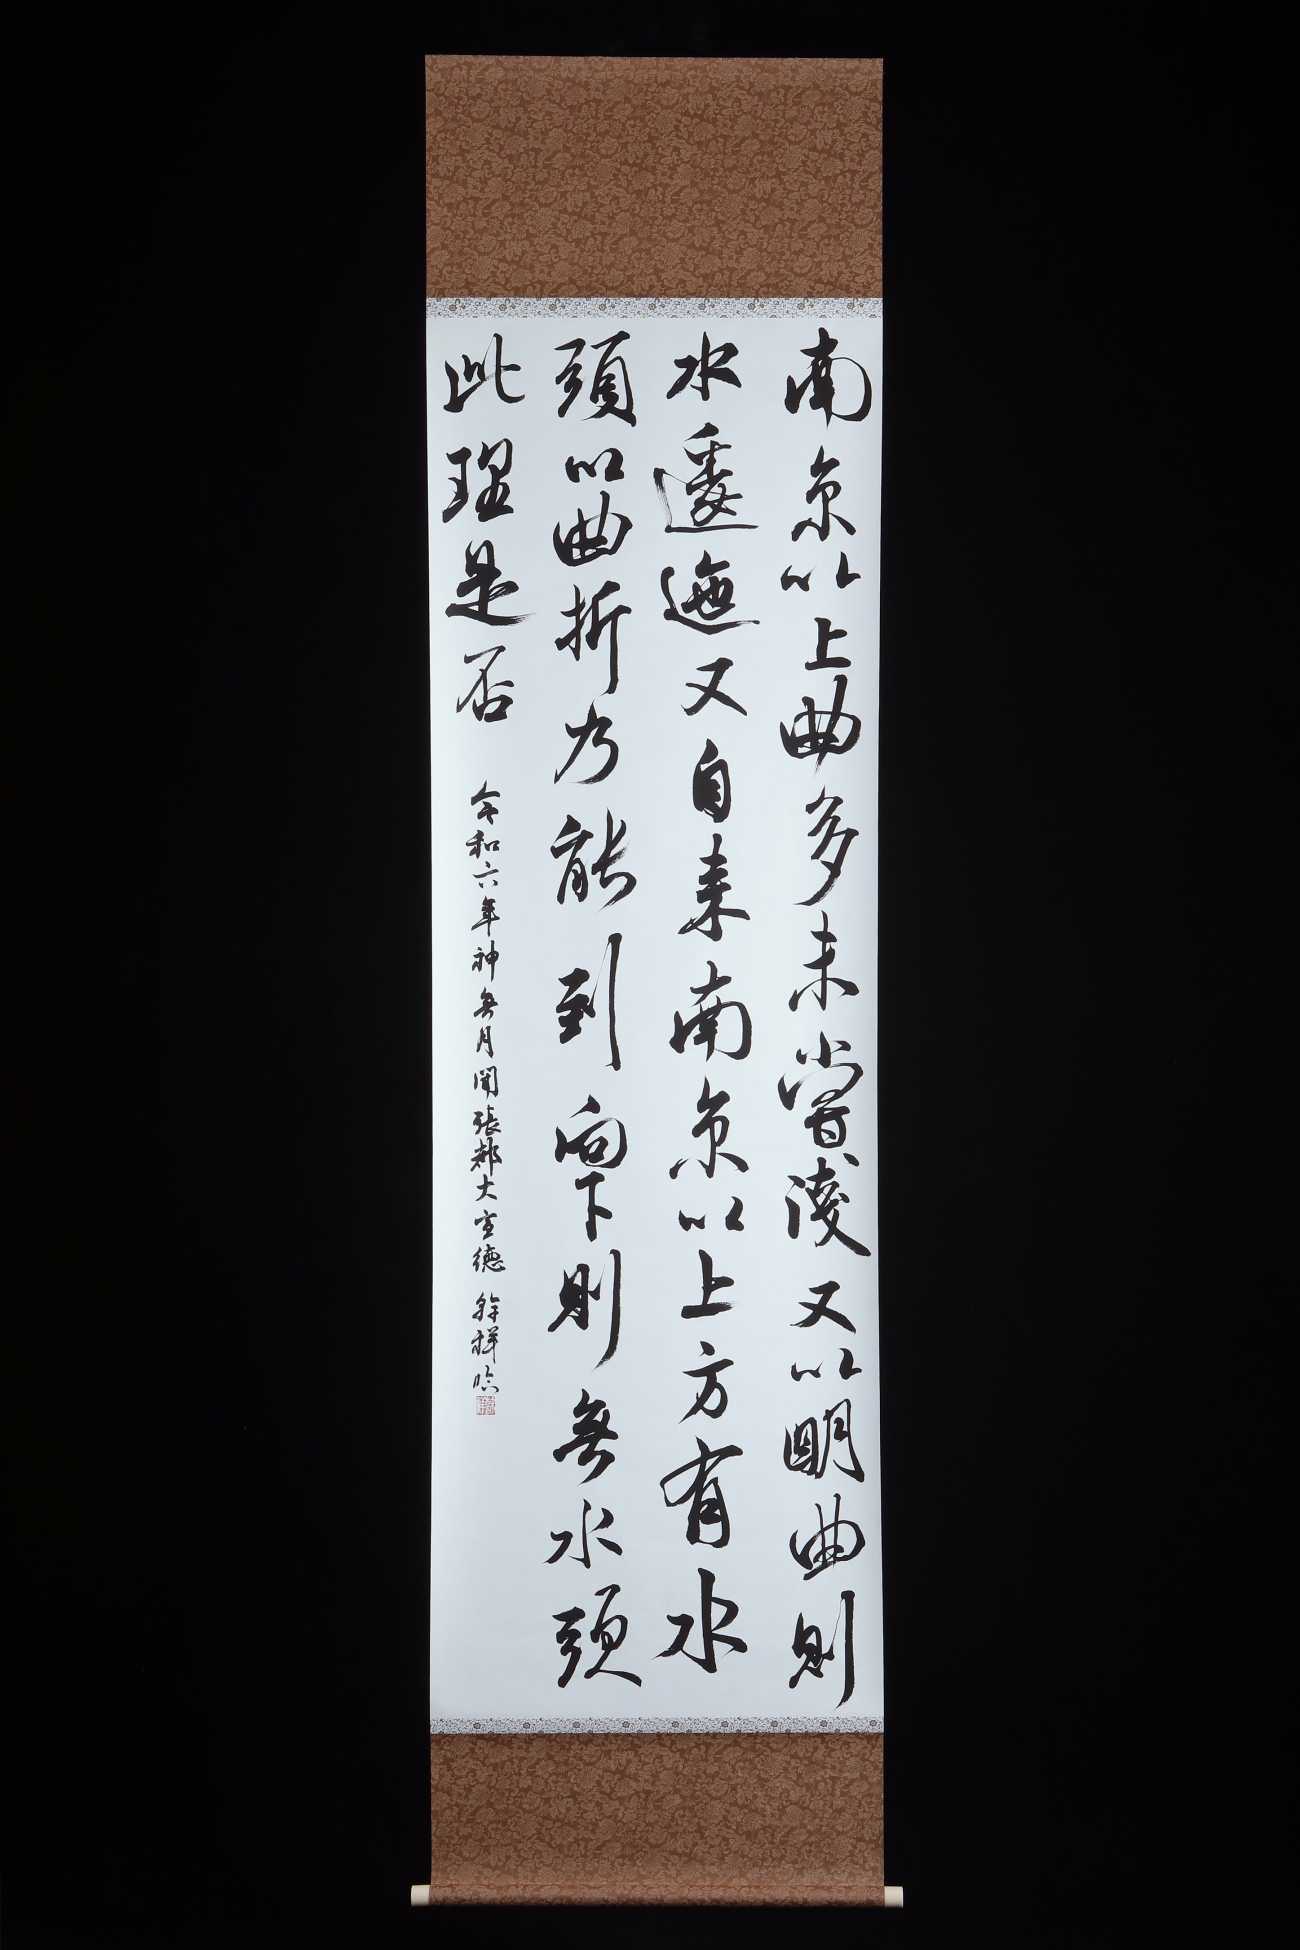 南京以上曲多未嘗淺又以明曲則
水逶迤又自來南京以上方有水
頭以曲折乃能到向下則無水頭
此理是否
令和六年神無月聞張都大宣德 祥臨